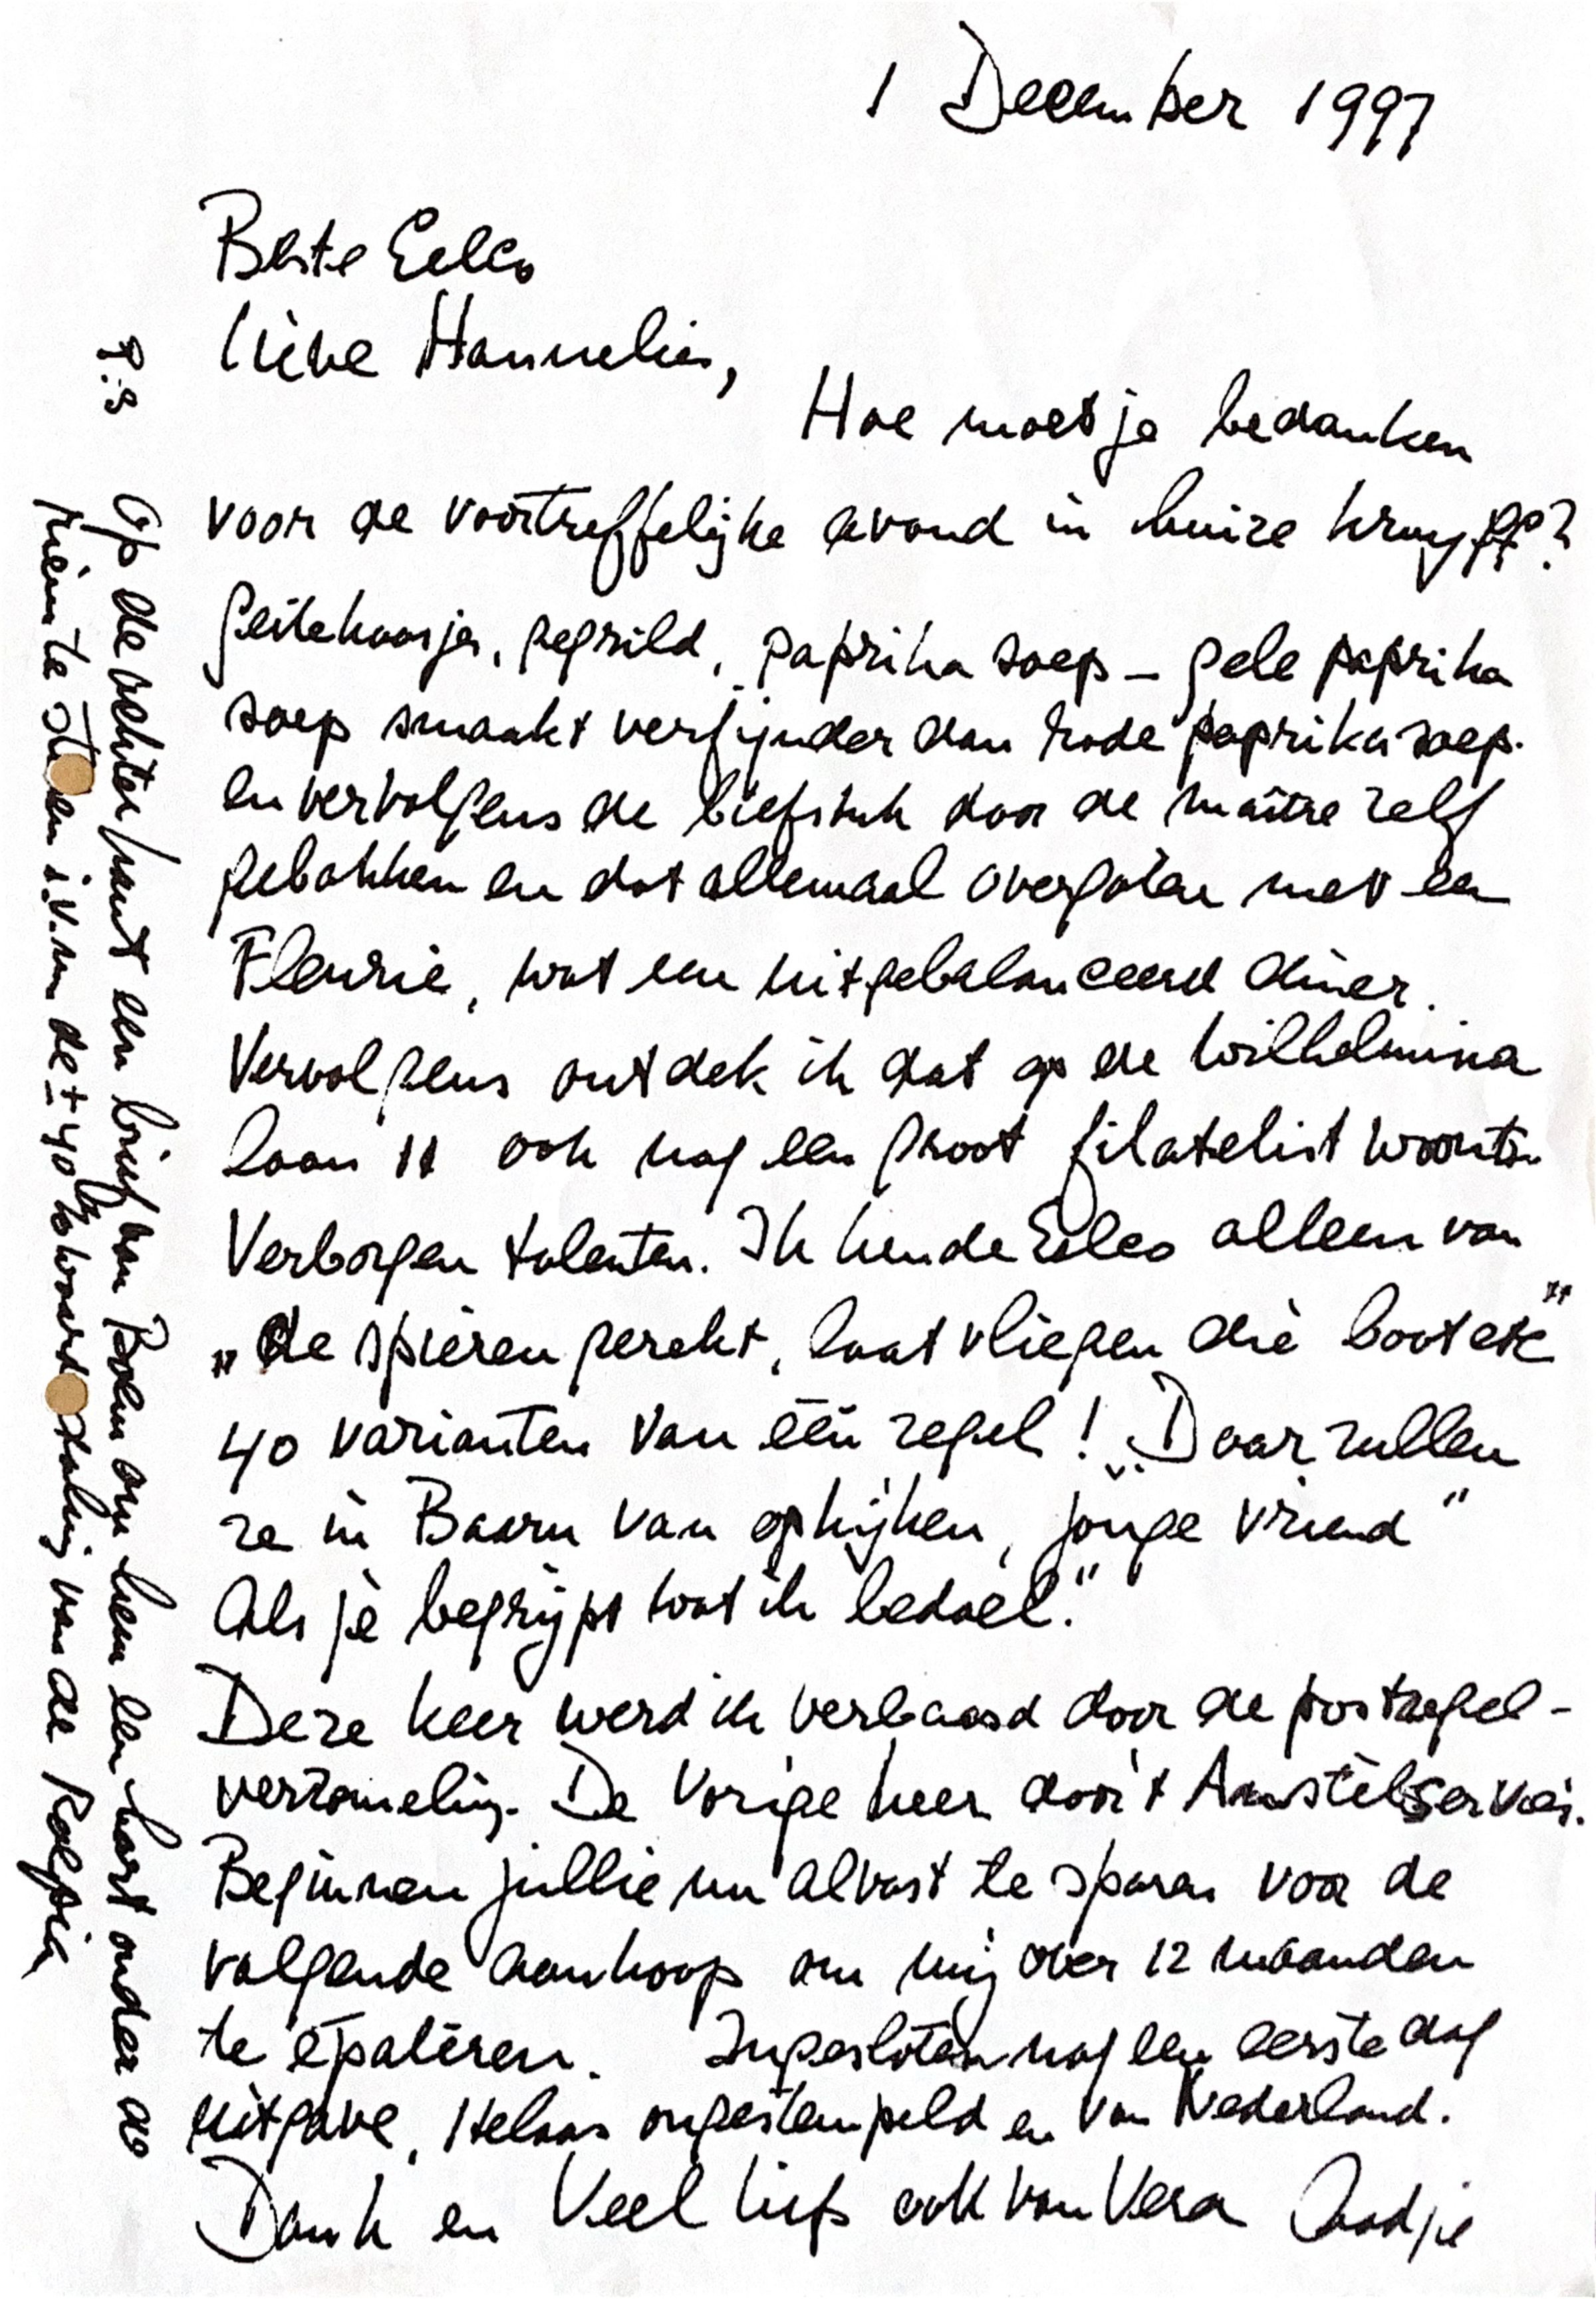 1 December 1997
Beste Eelco
lieve Hannelies,
Hoe moet je bedanken
voor de voortreffelijke avond in huize
Geitekaasjes, gegrild, paprika soep - gele paprika
soep smaakt verfijnder dan rode paprika soep.
en vervolgens de biefstuk door de maître zelf
gebakken en dat allemaal overgoten met een
Fleurie, wat een uitgebalanceerd diner.
Vervolgens ontdek ik dat op de Wilhelmina
laan 11 ook nog een groot filatelist woont.
Verborgen talenten. Ik kende Eelco alleen van
„de spieren gerekt, laat vliegen die boot etc"
40 varianten van één regel! „Daar zullen
ze in Baarn van opkijken, jonge vriend"
Als je begrijpt wat ik bedoel."
Deze keer werd ik verbaasd door de postzegel-
verzameling. De vorige keer door 't Amstelservies.
Beginnen jullie nu alvast te sparen voor de
volgende aankoop om mij over 12 maanden
te épateren. Ingesloten nog een eerste dag
uitgave, Helaas ongestempeld en van Nederland.
Dank en Veel liefs ook van Vera Aadje
P.S
Op de achterkant een brief van Bolm om hem een hart onder de
riem te steken i.v.m de ± 40 % van de